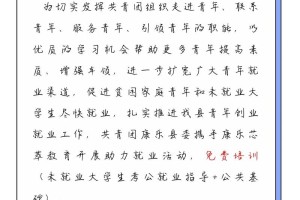 为切实发挥共青团组织走进青年、联系
青年、服务青年、引领青年的职能，以
优质的学习机会帮助更多青年提高素
质、增强本领，进一步扩宽广大青年就
业渠道，促进贫困家庭青年和未就业大
学生尽快就业，扎实推进我县青年创业
就业工作，共青团康乐县委携手康乐芯
萃教育开展助力就业活动，免费培训
（未就业大学生考公就业指导+公共基